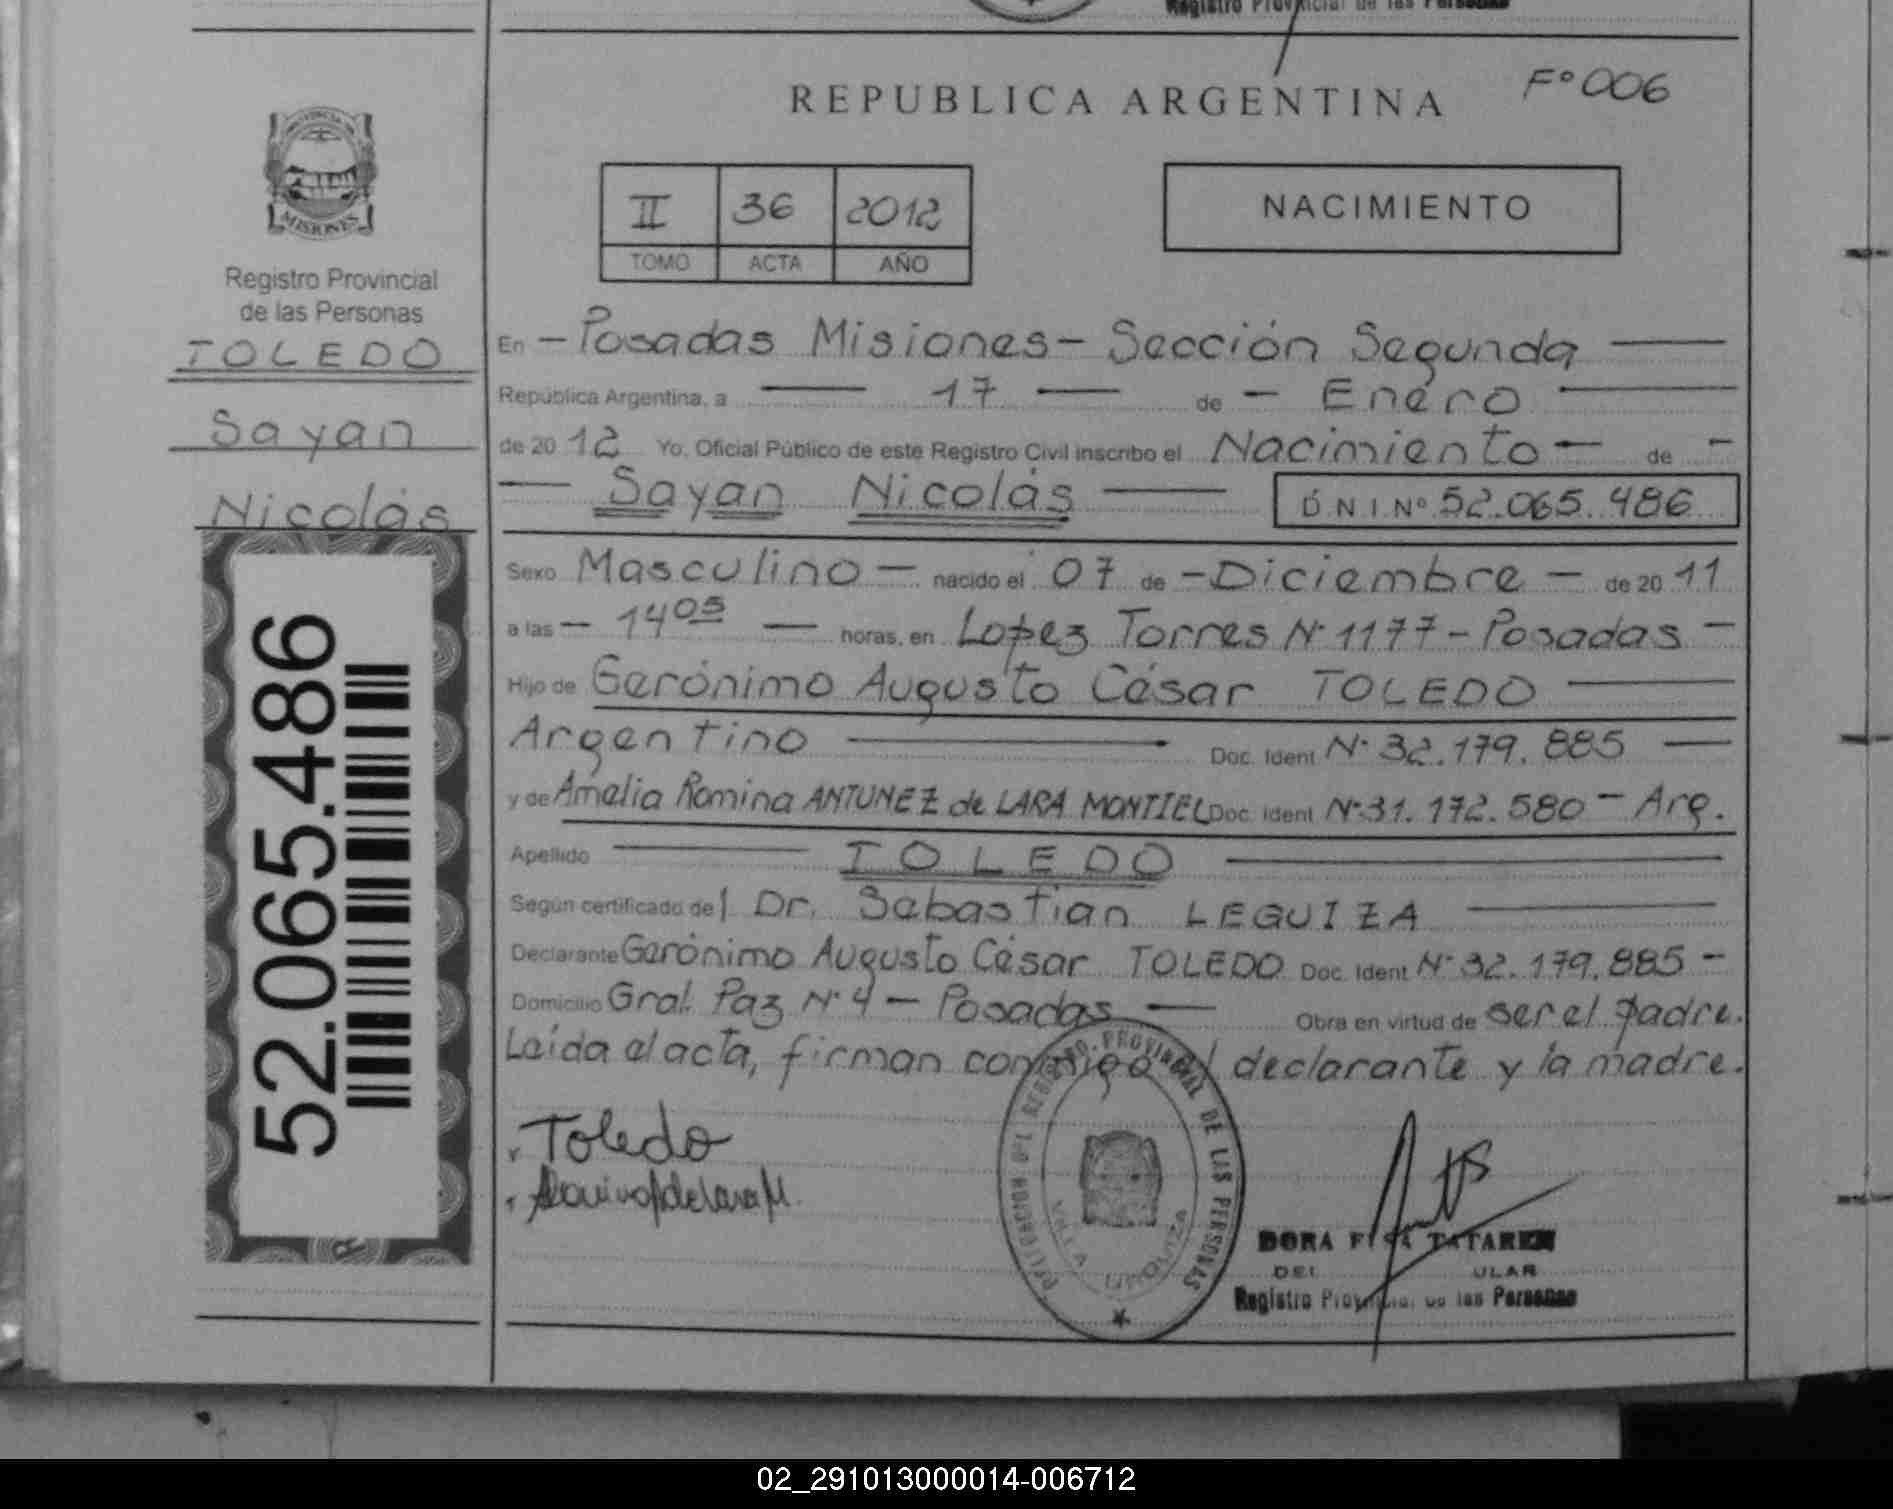 Registro Provincial de las Personas
REPUBLICA ARGENTINA
Fº 006
PROVINCIA DE
MISIONES
Registro Provincial
de las Personas
TOLEDO
Sayan
Nicolás
52.065.486
II 36 2012
TOMO ACTA AÑO
NACIMIENTO
En - Posadas Misiones - Sección Segunda
República Argentina, a 17 de - Enero
de 2012 Yo, Oficial Público de este Registro Civil inscribo el Nacimiento - de -
Sayan Nicolás
D.N.I. Nº 52.065.486
Sexo Masculino - nacido el 07 de - Diciembre - de 2011
a las - 14 05 - horas, en Lopez Torres Nº 1177 - Posadas -
Hijo de Gerónimo Augusto César TOLEDO
Argentino Doc. Ident Nº 32.179.885
y de Amelia Romina ANTUNEZ de LARA MONTIEL Doc. Ident Nº 31.172.580 - Arg.
Apellido TOLEDO
Según certificado del Dr. Sebastian LEGUIZA
Declarante Gerónimo Augusto César TOLEDO Doc. Ident Nº 32.179.885 -
Domicilio Gral. Paz Nº 4 - Posadas - Obra en virtud de ser el padre.
Leída el acta, firman conmigo el declarante y la madre.
Toledo
REGISTRO PROVINCIAL DE LAS PERSONAS
VILLA URQUIZA
DORA TATAREN
Registro Provincial de las Personas
02_291013000014-006712